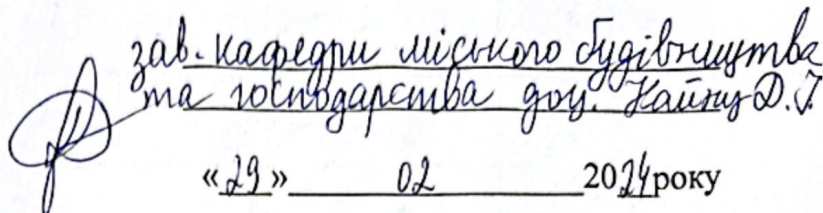 зав. кафедри міського будівництва
та господарства доц. Найпиш Д. І.
«29» 02 2024 року